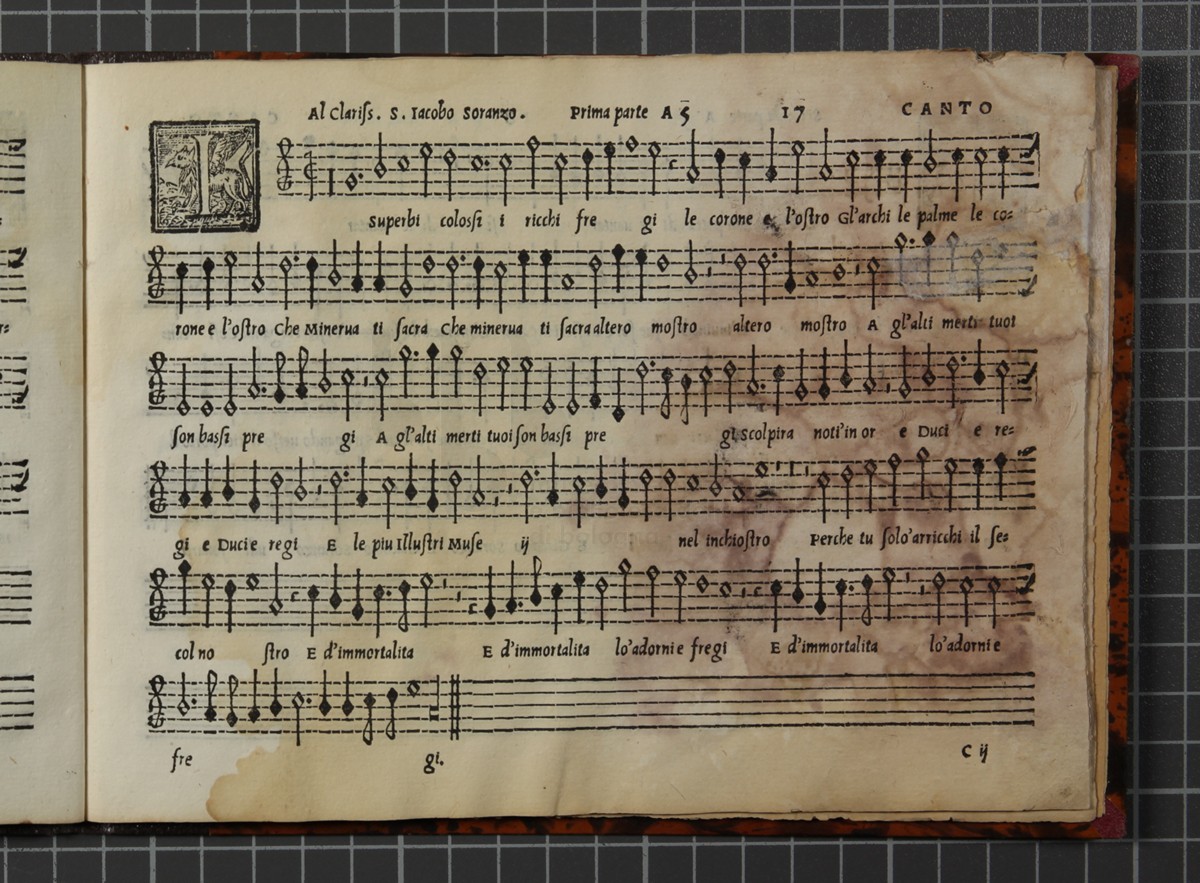 Al Clariſs. S. Iacobo Soranzo. Prima parte A 5 17 CANTO
I
superbi coloſsi i ricchi fre gi le corone e l'oſtro Gl'archi le palme le co=
rone e l'oſtro Che Minerua ti ſacra Che minerua ti ſacra altero moſtro altero moſtro A gl'alti merti tuoi
ſon baſsi pre gi A gl'alti merti tuoi ſon baſsi pre gi Scolpira noti'in or e Duci e re=
gi e Duci e regi E le piu Illuſtri Muſe ij nel inchioſtro Perche tu ſolo'arricchi il ſe=
col no ſtro E d'immortalita E d'immortalita lo'adorni e fregi E d'immortalita lo'adorni e
fre gi.
C ij